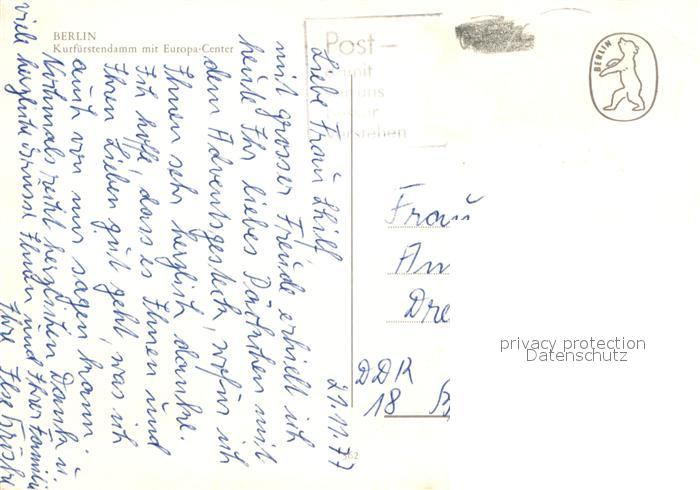 BERLIN
Kurfürstendamm mit Europa-Center
Post-
mit
uns
BERLIN
21.11.77
Liebe Frau
mit grosser Freude erhielt ich
heute Ihr liebes Päckchen mit
dem Adventsgesteck, wofür ich
Ihnen sehr herzlich danke.
Ich hoffe, dass es Ihnen und
Ihren Lieben gut geht, was ich
auch von mir sagen kann.
Nochmals recht herzlichen Dank u.
viele herzliche Grüsse Ihnen und Ihrer Familie
Ihre Ilse
Frau
An
Dre
DDR
18
privacy protection
Datenschutz